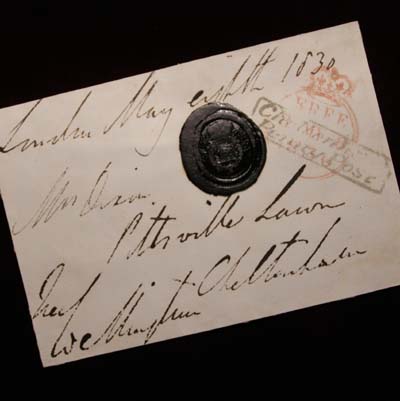 London May eighth 1830
FREE
Penny Post
Mrs Dixon
Pittville Lawn
Cheltenham
Wellington